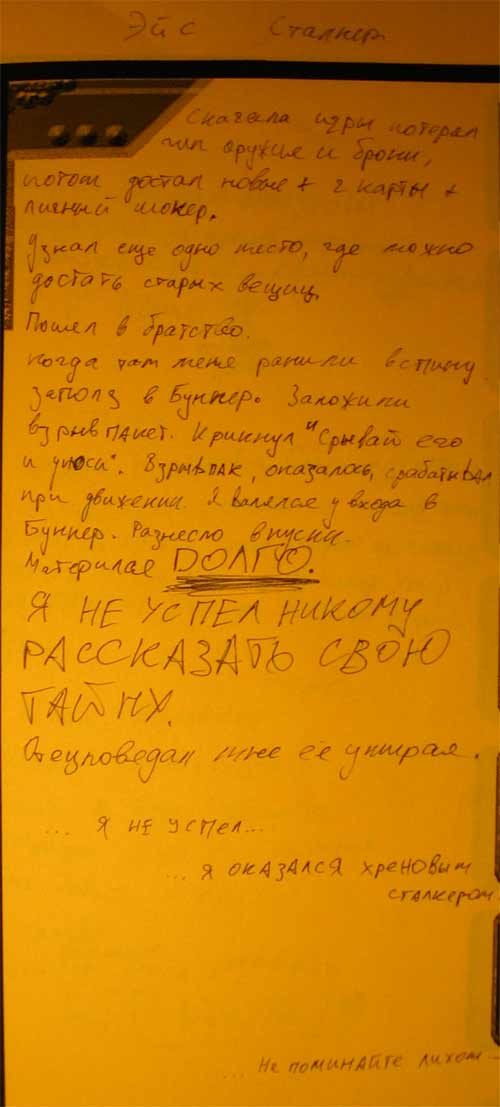 Эйс Сталкер
Сначала игры потерял
тип оружия и брони,
потом достал новые + 2 карты +
личный шокер.
Узнал еще одно место, где можно
достать старых вещиц.
Пошел в братство.
Когда там меня ранили в спину
заполз в Бункер. Заложили
взрывпакет. Крикнул "Срывай его
и уноси". Взрывпак, оказалось, срабатывал
при движении. Я валялся у входа в
Бункер. Разнесло в куски.
Матерился ДОЛГО.
Я НЕ УСПЕЛ НИКОМУ
РАССКАЗАТЬ СВОЮ
ТАЙНУ.
Отец поведал мне её умирая.
... Я НЕ УСПЕЛ...
... Я ОКАЗАЛСЯ ХРЕНОВЫМ
СТАЛКЕРОМ.
... НЕ ПОМИНАЙТЕ ЛИХОМ...